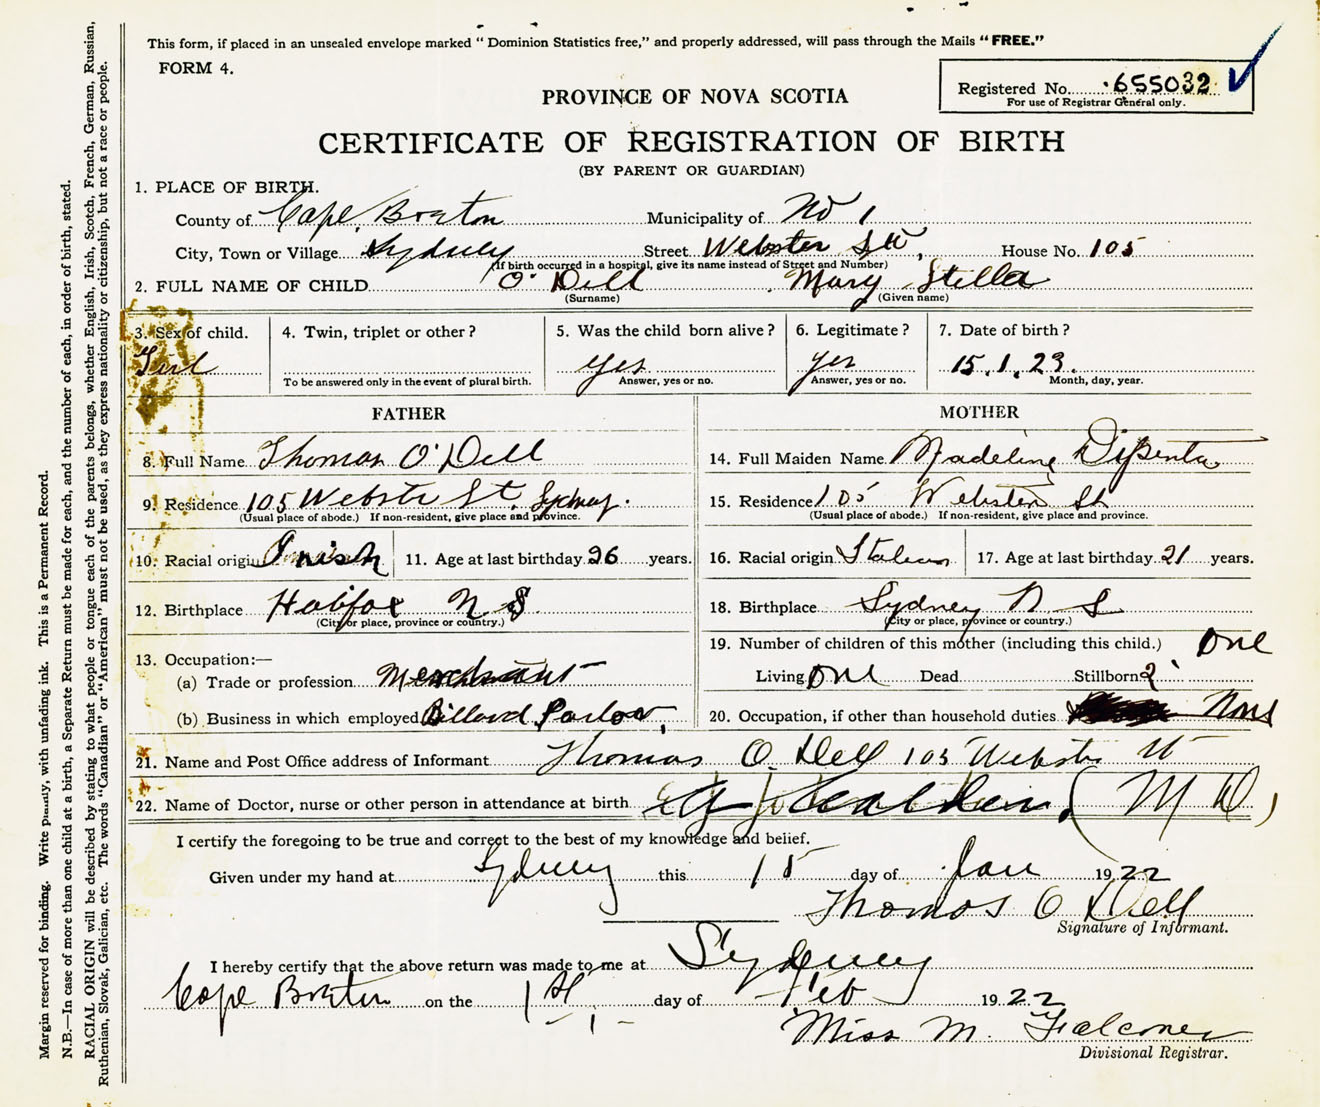 This form, if placed in an unsealed envelope marked “Dominion Statistics free,” and properly addressed, will pass through the Mails “FREE.”
FORM 4.
Registered No. 655032
For use of Registrar General only.
PROVINCE OF NOVA SCOTIA
CERTIFICATE OF REGISTRATION OF BIRTH
(BY PARENT OR GUARDIAN)
1. PLACE OF BIRTH.
County of Cape Breton Municipality of No 1
City, Town or Village Sydney Street Webster St House No. 105
(If birth occurred in a hospital, give its name instead of Street and Number)
2. FULL NAME OF CHILD O'Dell Mary Stella
(Surname) (Given name)
3. Sex of child. 4. Twin, triplet or other? 5. Was the child born alive? 6. Legitimate? 7. Date of birth?
Girl yes yes 15.1.23.
To be answered only in the event of plural birth. Answer, yes or no. Answer, yes or no. Month, day, year.
FATHER MOTHER
8. Full Name Thomas O'Dell 14. Full Maiden Name Madeline DiPenta
9. Residence 105 Webster St. Sydney. 15. Residence 105 Webster St
(Usual place of abode.) If non-resident, give place and province. (Usual place of abode.) If non-resident, give place and province.
10. Racial origin Irish 11. Age at last birthday 26 years. 16. Racial origin Italian 17. Age at last birthday 21 years.
12. Birthplace Halifax N S 18. Birthplace Sydney N S
(City or place, province or country.) (City or place, province or country.)
19. Number of children of this mother (including this child.) One
13. Occupation:—
(a) Trade or profession Merchant Living One Dead Stillborn 2
(b) Business in which employed Billard Parlor, 20. Occupation, if other than household duties None
21. Name and Post Office address of Informant Thomas O. Dell 105 Webster St
22. Name of Doctor, nurse or other person in attendance at birth (M D)
I certify the foregoing to be true and correct to the best of my knowledge and belief.
Given under my hand at Sydney this 15 day of Jan 1922
Thomas O Dell
Signature of Informant.
I hereby certify that the above return was made to me at Sydney
Cape Breton on the 1st day of Feb 1922
Miss M. Falconer
Divisional Registrar.
Margin reserved for binding. Write plainly, with unfading ink. This is a Permanent Record.
N.B.—In case of more than one child at a birth, a Separate Return must be made for each, and the number of each, in order of birth, stated.
RACIAL ORIGIN will be described by stating to what people or tongue each of the parents belongs, whether English, Irish, Scotch, French, German, Russian,
Ruthenian, Slovak, Galician, etc. The words “Canadian” or “American” must not be used, as they express nationality or citizenship, but not a race or people.